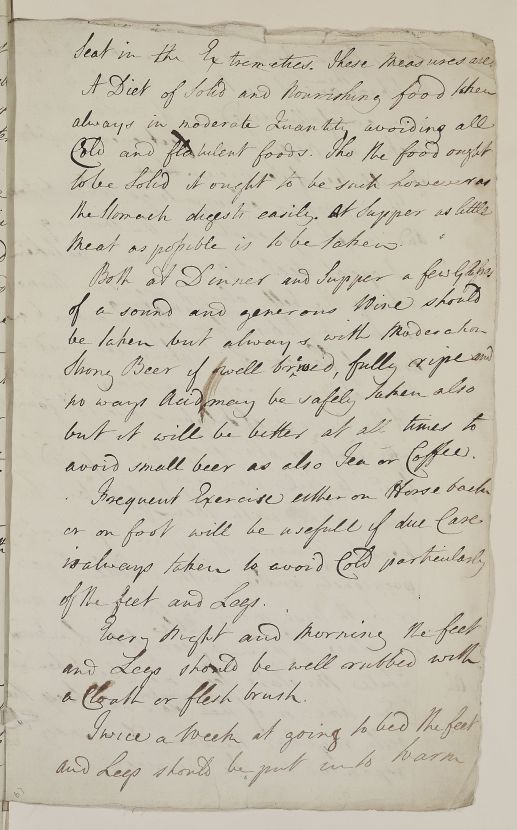 Seat in the Extremeties. These Measures are
A Diet of Solid and Nourishing food taken
always in moderate Quantity, avoiding all
Cold and flatulent foods. Tho the food ought
to be Solid it ought to be such however as
the Stomach digests easily. At Supper as little
Meat as possible is to be taken.
Both at Dinner and Supper a few Glasses
of a sound and generous Wine should
be taken but always with Moderation
Strong Beer if well brewed, fully ripe and
no ways Acid may be safely taken also
but it will be better at all times to
avoid small beer as also Tea or Coffee.
Frequent Exercise either on Horse back
or on foot will be usefull if due Care
is always taken to avoid Cold particularly
of the feet and Legs.
Every Night and Morning the feet
and Legs should be well rubbed with
a Cloath or flesh brush.
Twice a Week at going to bed the feet
and Legs should be put into warm